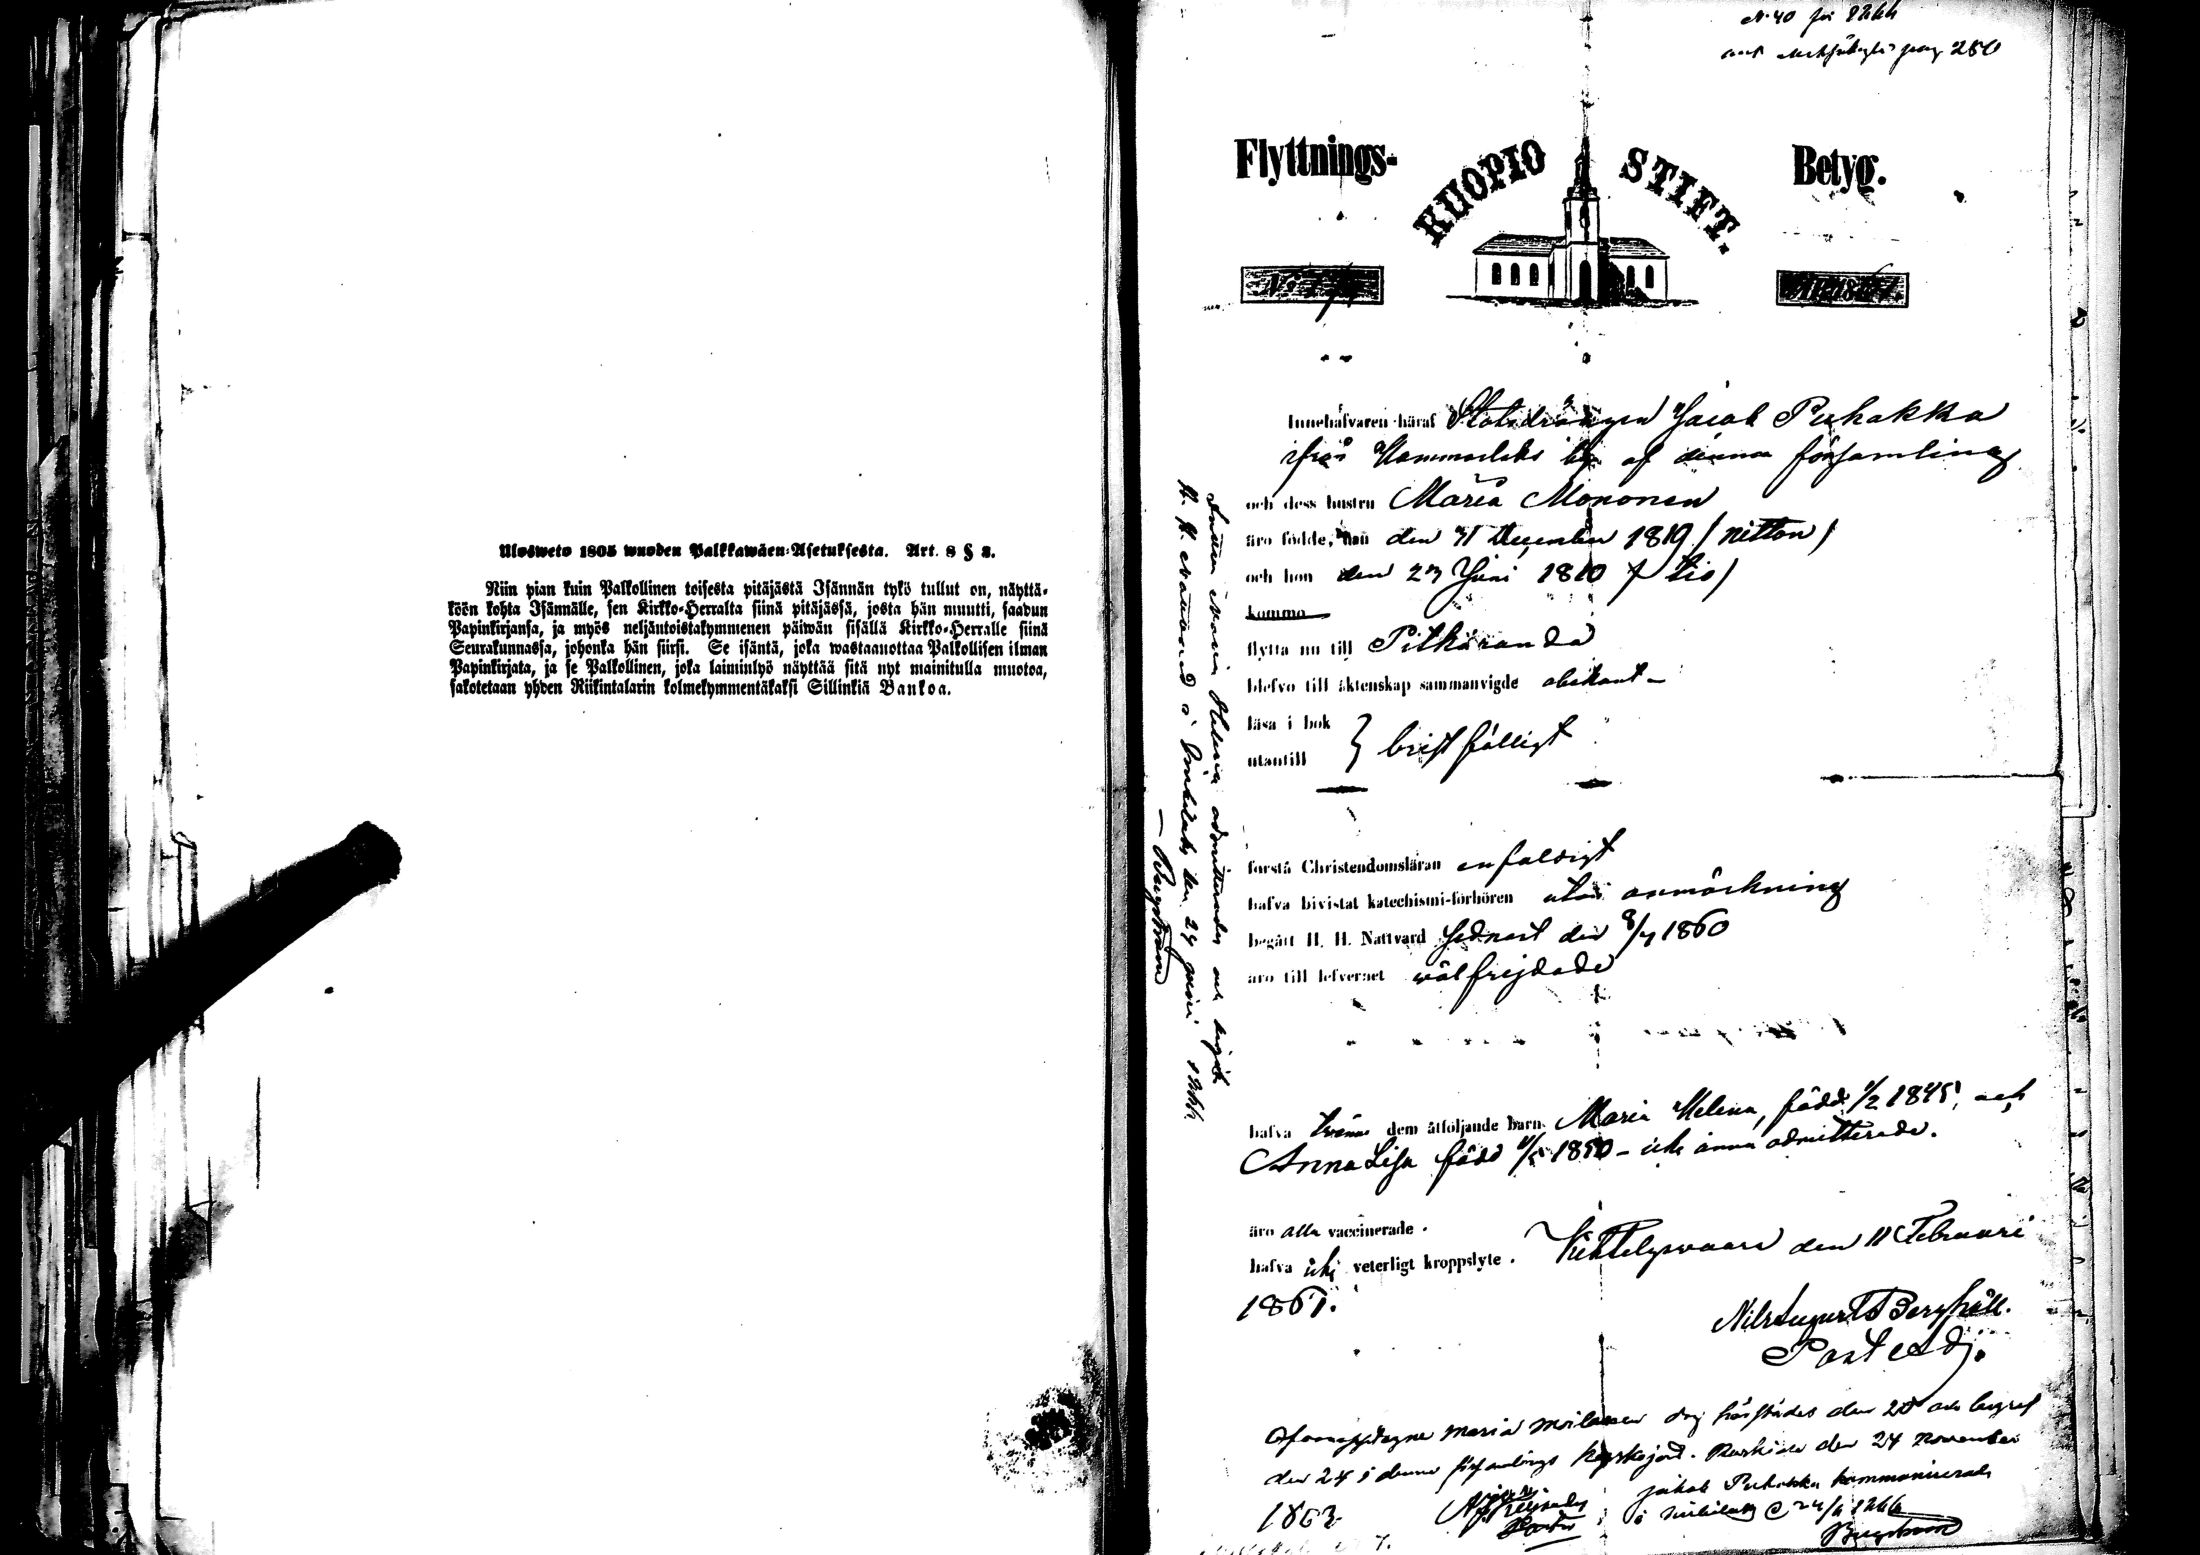 Ulosweto 1805 wuoden Palkkawäen-Asetuksesta. Art. 8 § 2.
Niin pian kuin Palkollinen toisesta pitäjästä Isännän tykö tullut on, näyttä-
köön kohta Isännälle, sen Kirkko-Herralta siinä pitäjässä, josta hän muutti, saadun
Papinkirjansa, ja myös neljäntoistakymmenen päiwän sisällä Kirkko-Herralle siinä
Seurakunnassa, johonka hän siirsi. Se isäntä, joka wastaanottaa Palkollisen ilman
Papinkirjata, ja se Palkollinen, joka laiminlyö näyttää sitä nyt mainitulla muotoa,
sakotetaan yhden Riikintalarin kolmekymmentäkaksi Sillinkiä Bankoa.
N:40 för 1866
pag 250
Flyttnings- KUOPIO STIFT. Betyg.
Innehafvaren häraf Statsdrängen Jacob Puhakka
ifrån Hammaslaks by af denna församling
och dess hustru Maria Mononen
äro födde, han den 31 December 1819 (nitton)
och hon den 23 Juni 1810 (tio)
kommo
flytta nu till Pitkäranda
blefvo till äktenskap sammanvigde obekant
läsa i bok
utantill } bristfälligt
förstå Christendomsläran enfaldigt
hafva bivistat katechismi-förhören utan anmärkning
begått H. H. Nattvard sednast den 8/7 1860
äro till lefvernet välfrejdade
hafva tvänne dem åtföljande barn Maria Helena, född 1/2 1845, och
Anna Lisa född 1850 - icke ännu admitterade.
äro alla vaccinerade.
hafva icke veterligt kroppslyte. Kiihtelysvaara den 11 Februari
1861.
Berghäll.
Past. Adj.
Maria den 20 och begrof
den 24 i denna församlings kyrkogård. den 24 November
1863 Jakob Puhakka kommunicerade
i 24/6 1866
Bergström
Maria Helena admitterades och begick
H. H. Nattvard i den 24 juni 1866.
Bergström